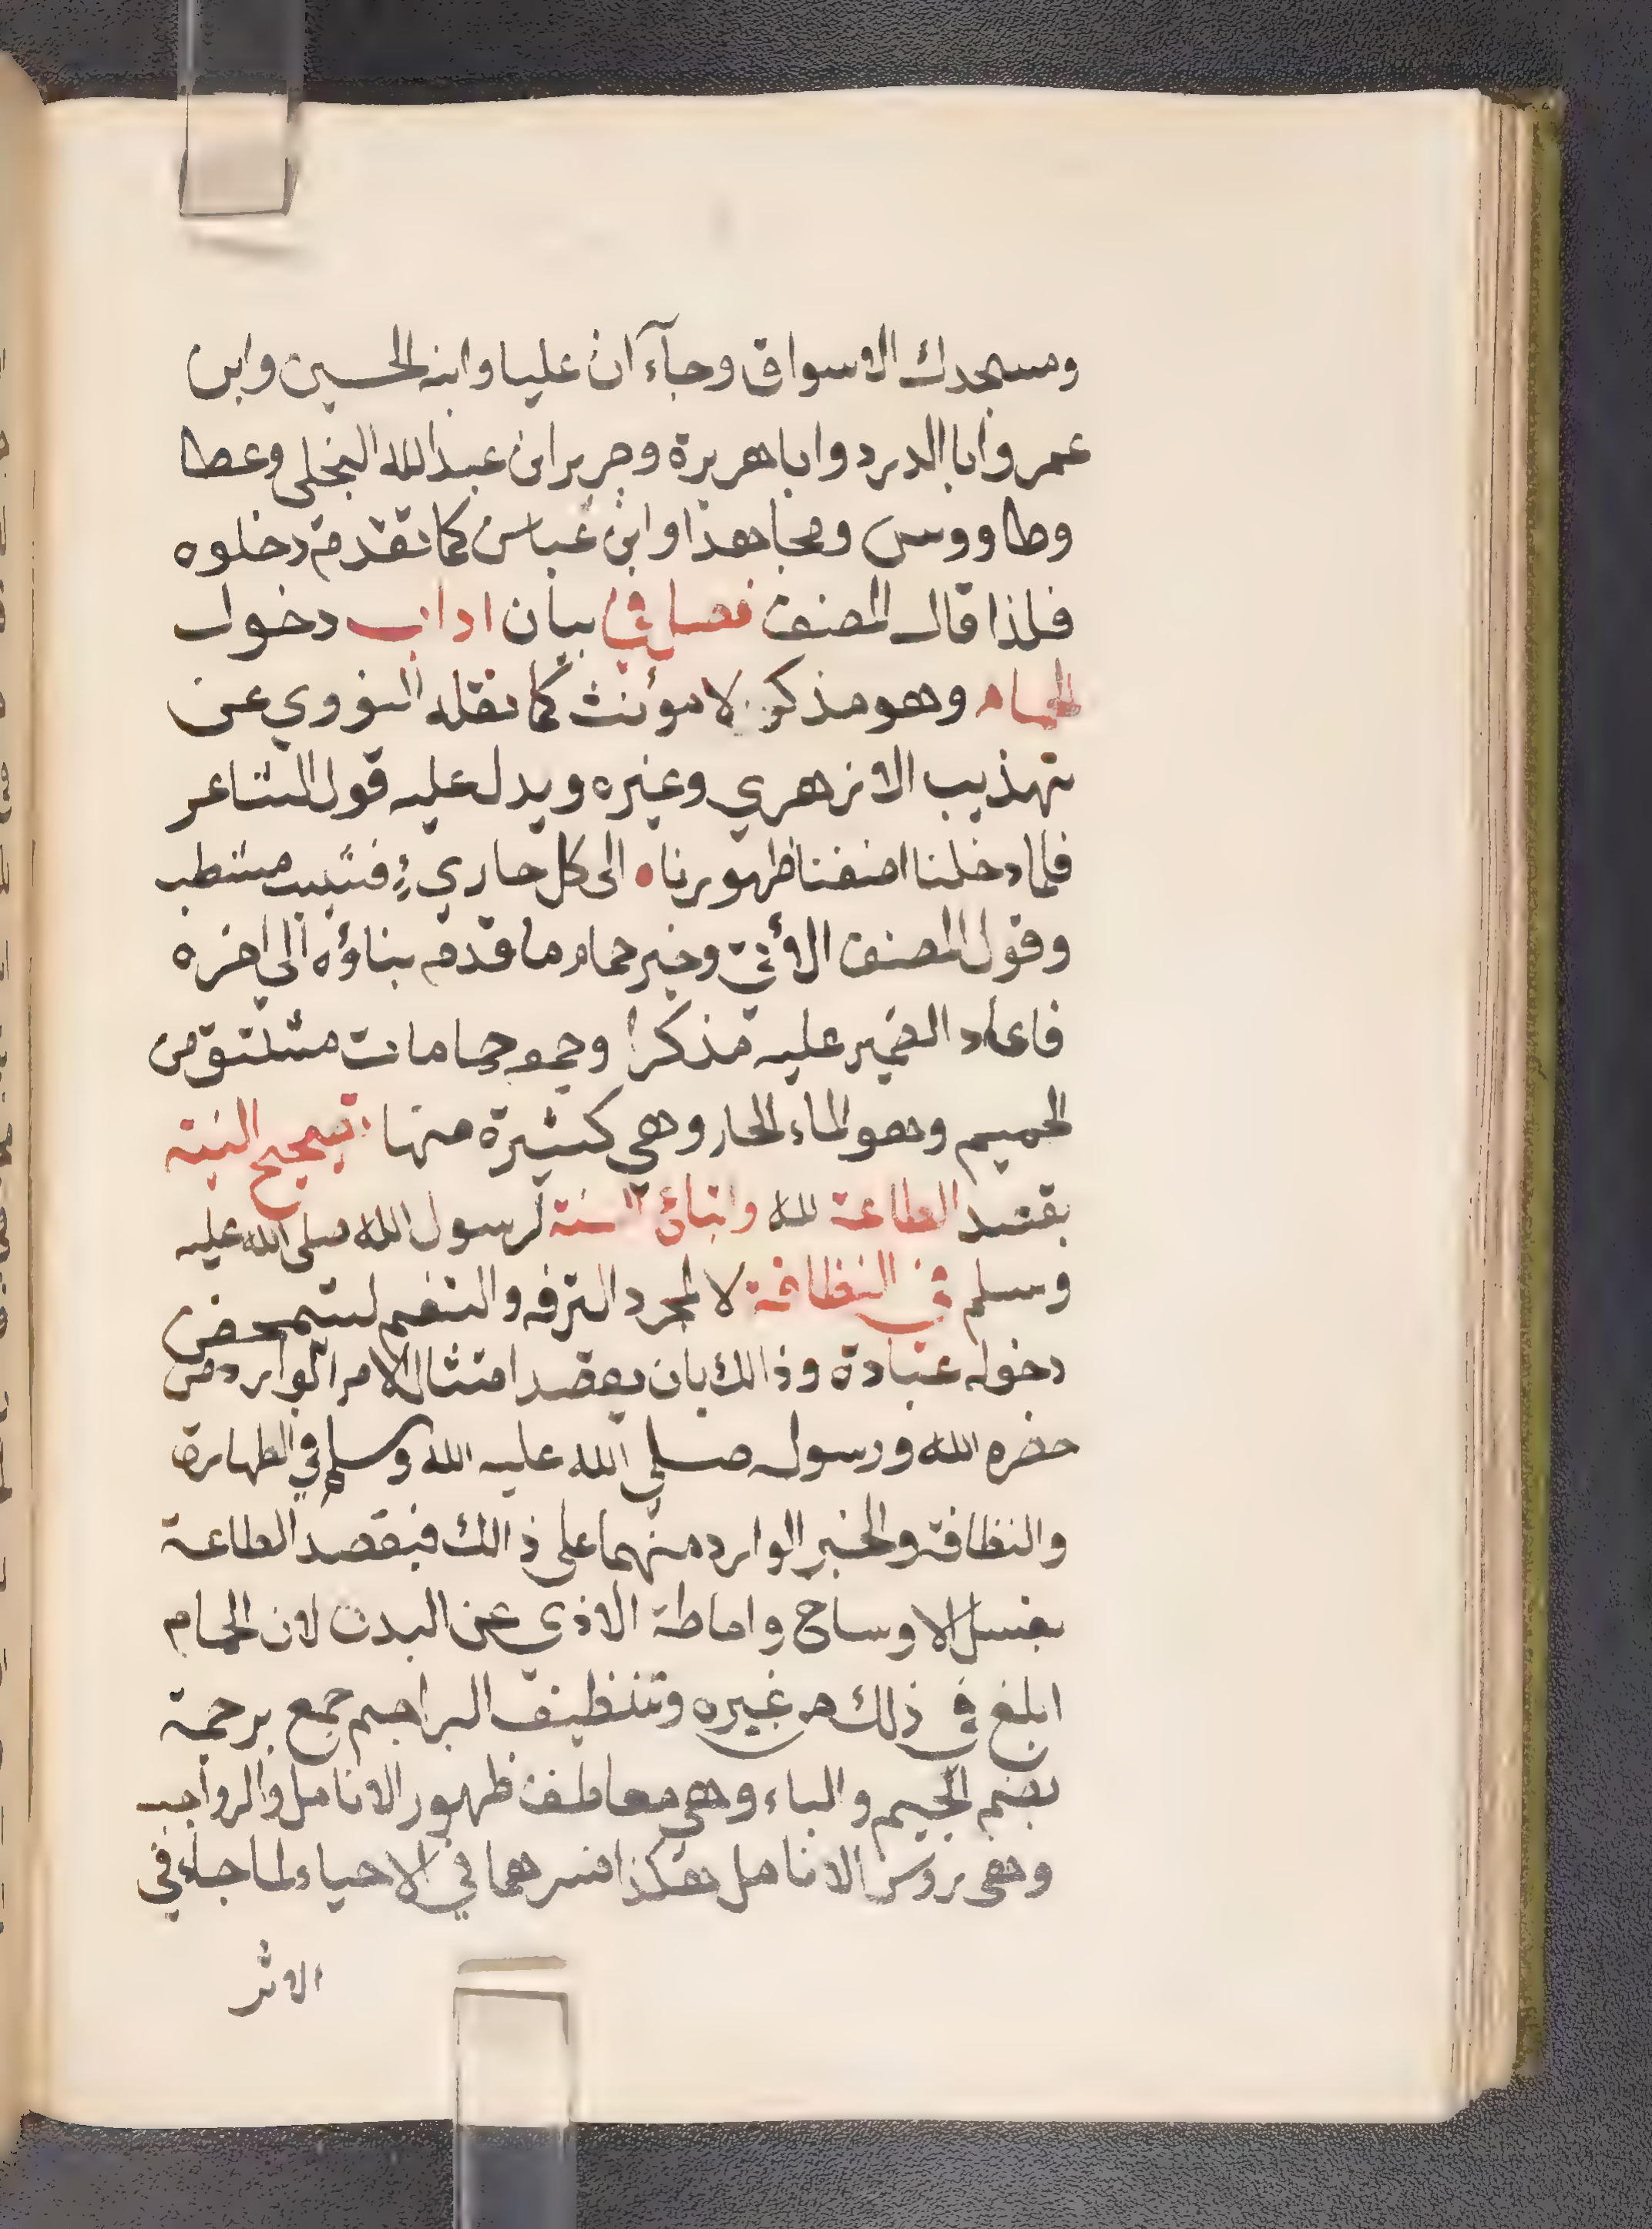 ومسجدك الاسواق وجآء ان عليا وابنه الحسين وابن
عمر وابا الدرد وابا هريرة وجرير ابن عبد الله البجلي وعطا
وطاووس ومجاهدا وابن عباس كما تقدم دخلوه
فلذا قال المصنف فصل في بيان اداب دخول
الحمام وهو مذكر لا مؤنث كما نقله النووي عن
تهذيب الازهري وغيره ويدل عليه قول الشاعر
فلما دخلنا اضفنا ظهورنا ه الى كل حاري
وقول المصنف الأتي وخير حمام ما قدم بناؤه الى اخره
فاعاد الضمير عليه مذكرا وجمع حمامات مشتق من
الحميم وهو الماء الحار وهي كثيرة منها تصحيح النية
بقصد الطاعة لله واتباع السنة لرسول الله صلى الله عليه
وسلم في النظافة لا لمجرد الترفه والتنعم ليتمحض
دخوله عبادة وذالك بان يقصد امتثال الامر الوارد من
حضره الله ورسول صلى الله عليه الله وسلم في الطهارة
والنظافة والخبر الوارد منهما على ذالك فيقصد الطاعة
بغسل الاوساح واماطة الاذى عن البدن لان الحمام
ابلغ في ذلك من غيره وتنظيف البراجم جمع برجمة
بضم الجيم والباء وهي معاطف ظهور الانامل والرواجب
وهي روس الانامل هكذا فسرهما في الاحياء لما جاء في
الاثر